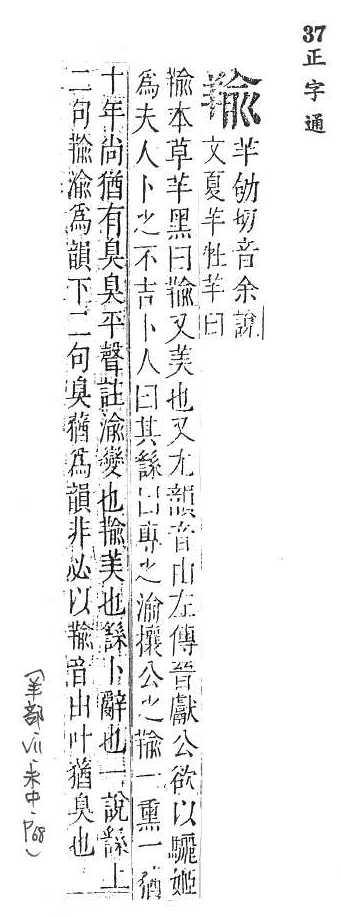 37正字通
羭
羊劬切音余說
文夏羊牡羊曰
羭本草羊黑曰羭又美也又尤韻音由左傳晉獻公欲以驪姬
為夫人卜之不吉卜人曰其繇曰專之渝攘公之羭一熏一猶
十年尚猶有臭臭平聲註渝變也羭美也繇卜辭也一說繇上
二句羭渝為韻下二句臭猶為韻非必以羭音由叶猶臭也
(羊部、vii、未中、P68)